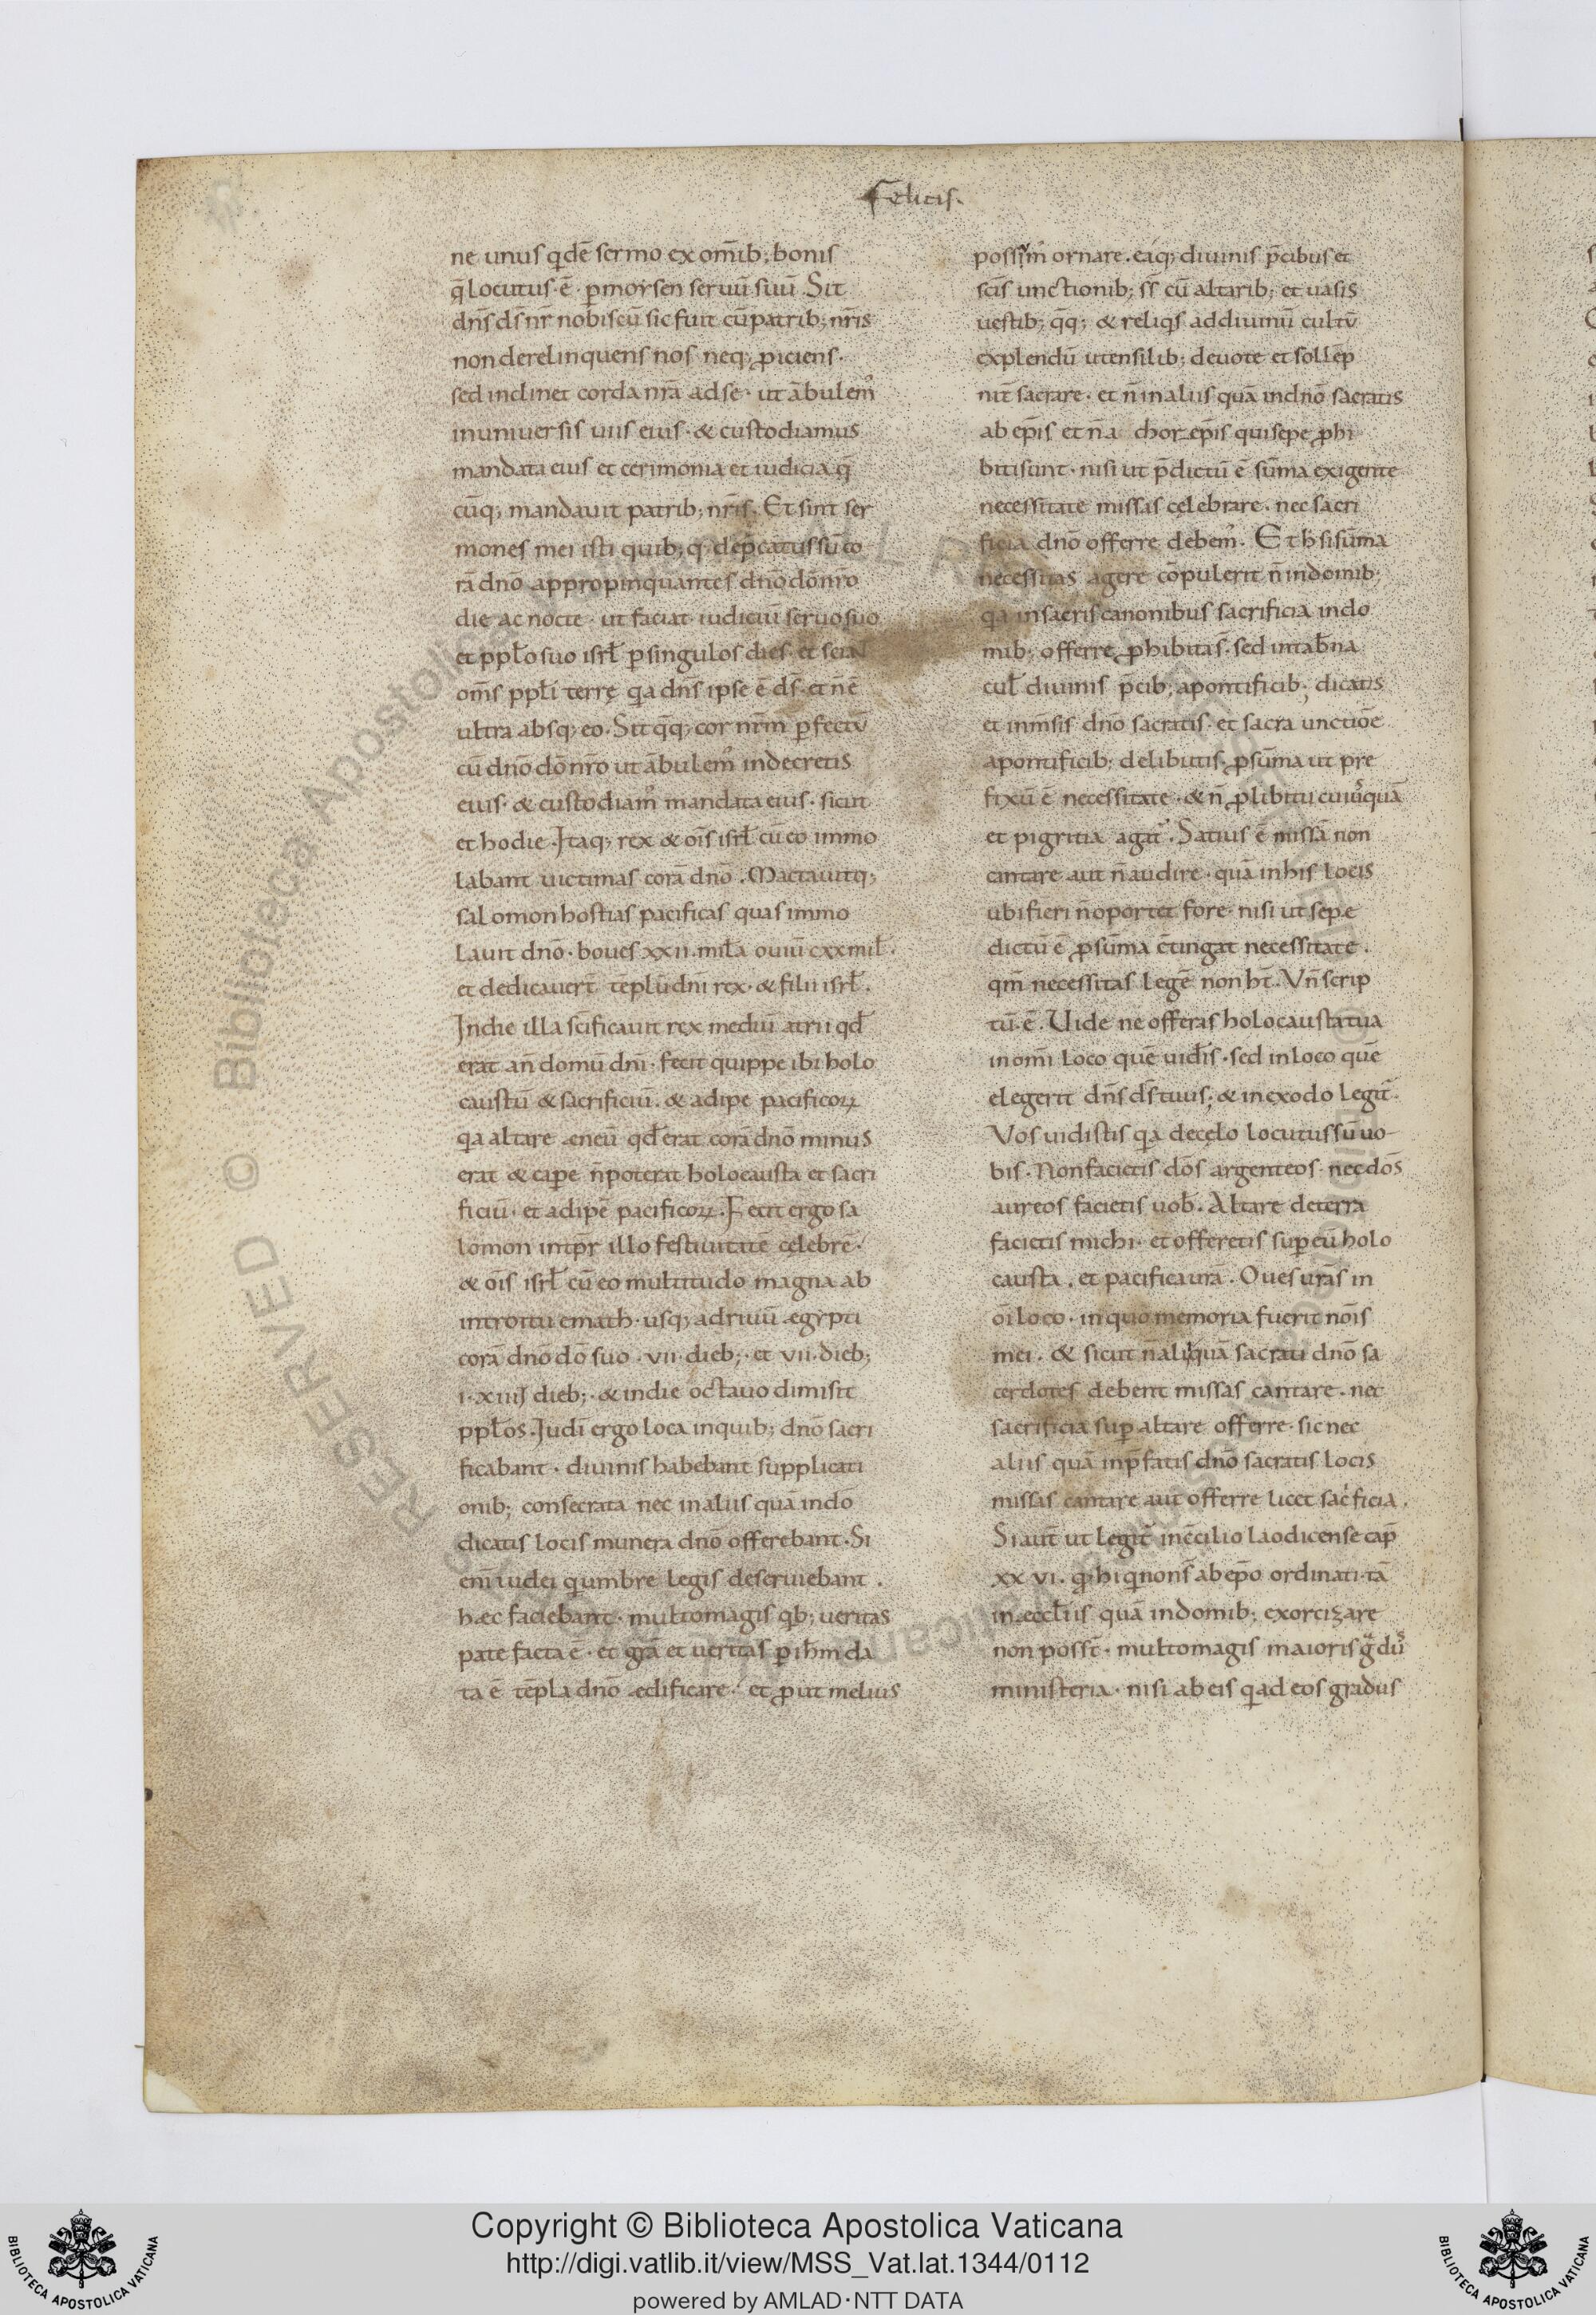 Felicis.
ne unus qdē sermo ex om̄ib; bonis
q̄ locutus·ē· p̲ moysen seruū suū. Sit
dn̄s ds̄ nr̄ nobiscū sic fuit cū patrib; nr̄is
non derelinquens nos neq; p̲iciens·
sed inclinet corda nr̄a ad se· ut ābulem᷒
in uniuersis uiis eius· & custodiamus
mandata eius et cerimonia et iudicia q̄
cūq; mandauit patrib; nr̄is. Et sint ser
mones mei isti quib; q; dep̄catus sū co
rā dn̄o appropinquantes dn̄o dō nr̄o
die ac nocte· ut faciat iudiciū seruo suo
et ppl̄o suo isrl̄ p̲ singulos dies· et sciāt
om̄s ppl̄i terrę qa dn̄s ipse ē ds̄· et n̄ ē
ultra absq; eo. Sit q̄q; cor nr̄m p̲fectū
cū dn̄o dō nr̄o ut ābulem᷒ in decretis
eius· & custodiam᷒ mandata eius· sicut
et hodie. Itaq; rex & ois̄ isrl̄ cū eo immo
labant uictimas corā dn̄o. Mactauitq;
salomon hostias pacificas quas immo
lauit dn̄o· boues xxii· mil̄a ouiū cxx mil̄·
et dedicauer̄t tēplū dn̄i rex· & filii isrl̄.
In die illa scīficauit rex mediū atrii qd̄
erat an̄ domū dn̄i· fecit quippe ibi holo
caustū & sacrificiū· & adipe pacificoꝝ
qa altare æneū qd̄ erat corā dn̄o minus
erat & cap̲e n̄ poterat holocausta et sacri
ficiū· et adipē pacificoꝝ. Fecit ergo sa
lomon in tp̄r illo festiuitatē cęlebrē·
& ois̄ isrl̄ cū eo multitudo magna ab
introitu emath· usq; ad riuū ægypti
corā dn̄o dō suo· vii· dieb;· et vii· dieb;
i· xiiij dieb;· & in die octauo dimisit
ppl̄os. Judi ergo loca in quib; dn̄o sacri
ficabant· diuinis habebant supplicati
onib; consecrata nec in aliis quā in dō
dicatis locis munera dn̄o offerebant. Si
eni̅ iudei q umbrę legis deseruiebant.
hæc faciebant· multo magis qb; ueritas
pate facta ē· et grā et ueritas p̲ ih̄m da
ta ē tēpla dn̄o ædificare· et p̲ut melius
possim᷒ ornare· eaq; diuinis p̄cibus et
scīs unctionib; ss̄ cū altarib; et uasis
uestib; q̄q; & reliqs ad diuinū cultū
explendū utensilib; deuote et sollēp
nit̄ sacrare· et n̄ in aliis quā in dn̄o sacratis
ab ep̄is et n̄ a chorep̄is qui sepe p̲hi
biti sunt· nisi ut p̄dictū ē sūma exigente
necessitate missas cęlebrare· nec sacri
ficia dn̄o offerre debem᷒. Et h si sūma
necessitas agere cōpulerit n̄ in domib;
qa in sacris canonibus sacrificia in do
mib; offerre p̲hibitas· sed in tab̄na
cul̄ diuinis p̄cib; a pontificib; dicatis
et in m̄sis dn̄o sacratis· et sacra unctiōe
a pontificib; delibutis p̲ sūma ut pre
fixū ē necessitate· & n̄ p̲ libitu cuiusquā
et pigritia agat᷒. Satius ē missā non
cantare aut n̄ audire· quā in his locis
ubi fieri n̄ oportet fore· nisi ut sepe
dictū ē p̲ sūma c̄tingat necessitate.
qm̄ necessitas legē non ht̄. Vn̄ scrip
tū ē. Uide ne offeras holocausta tua
in om̄i loco quē uidis̄· sed in loco quē
elegerit dn̄s ds̄ tuus; & in exodo legit᷒.
Vos uidistis qa de cęlo locutus sū uo-
bis. Non facietis dōs argenteos· nec dōs
aureos facietis uob̄. Altare de terra
facietis michi· et offeretis sup̲ eū holo
causta· et pacifica ura̅. Oues uras̅ in
oi̅ loco· in quo memoria fuerit nōis
mei· & sicut n̄ aliquā sacrati dn̄o sa
cerdotes debent missas cantare· nec
sacrificia sup̲ altare offerre· sic nec
aliis quā in p̄fatis dn̄o sacratis locis
missas cantare aut̄ offerre licet sacificia.
Si aut̄ ut legit᷒ in c̄cilio laodicense cap̄
xxvi· q̲d hi q nons̄ ab epo̅ ordinati· tā
in æccl̄iis quā in domib; exorcizare
non poss̄t· multo magis maioris gdus
ministeria· nisi ab eis q ad eos gradus
Copyright © Biblioteca Apostolica Vaticana
http://digi.vatlib.it/view/MSS_Vat.lat.1344/0112
powered by AMLAD·NTT DATA
BIBLIOTECA APOSTOLICA VATICANA
BIBLIOTECA APOSTOLICA VATICANA